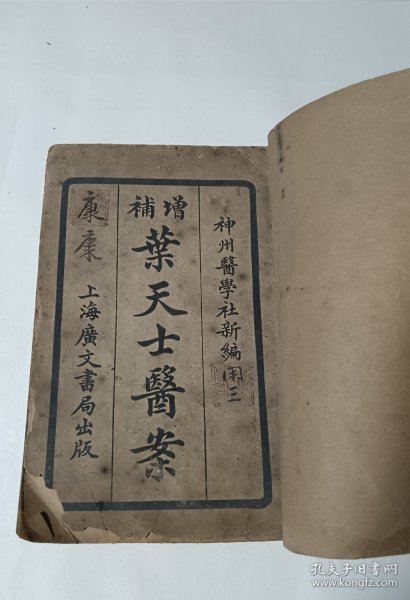 神州醫學社新編
增補
葉天士醫案
上海廣文書局出版
康康
孔夫子旧书网
www.kongfz.com